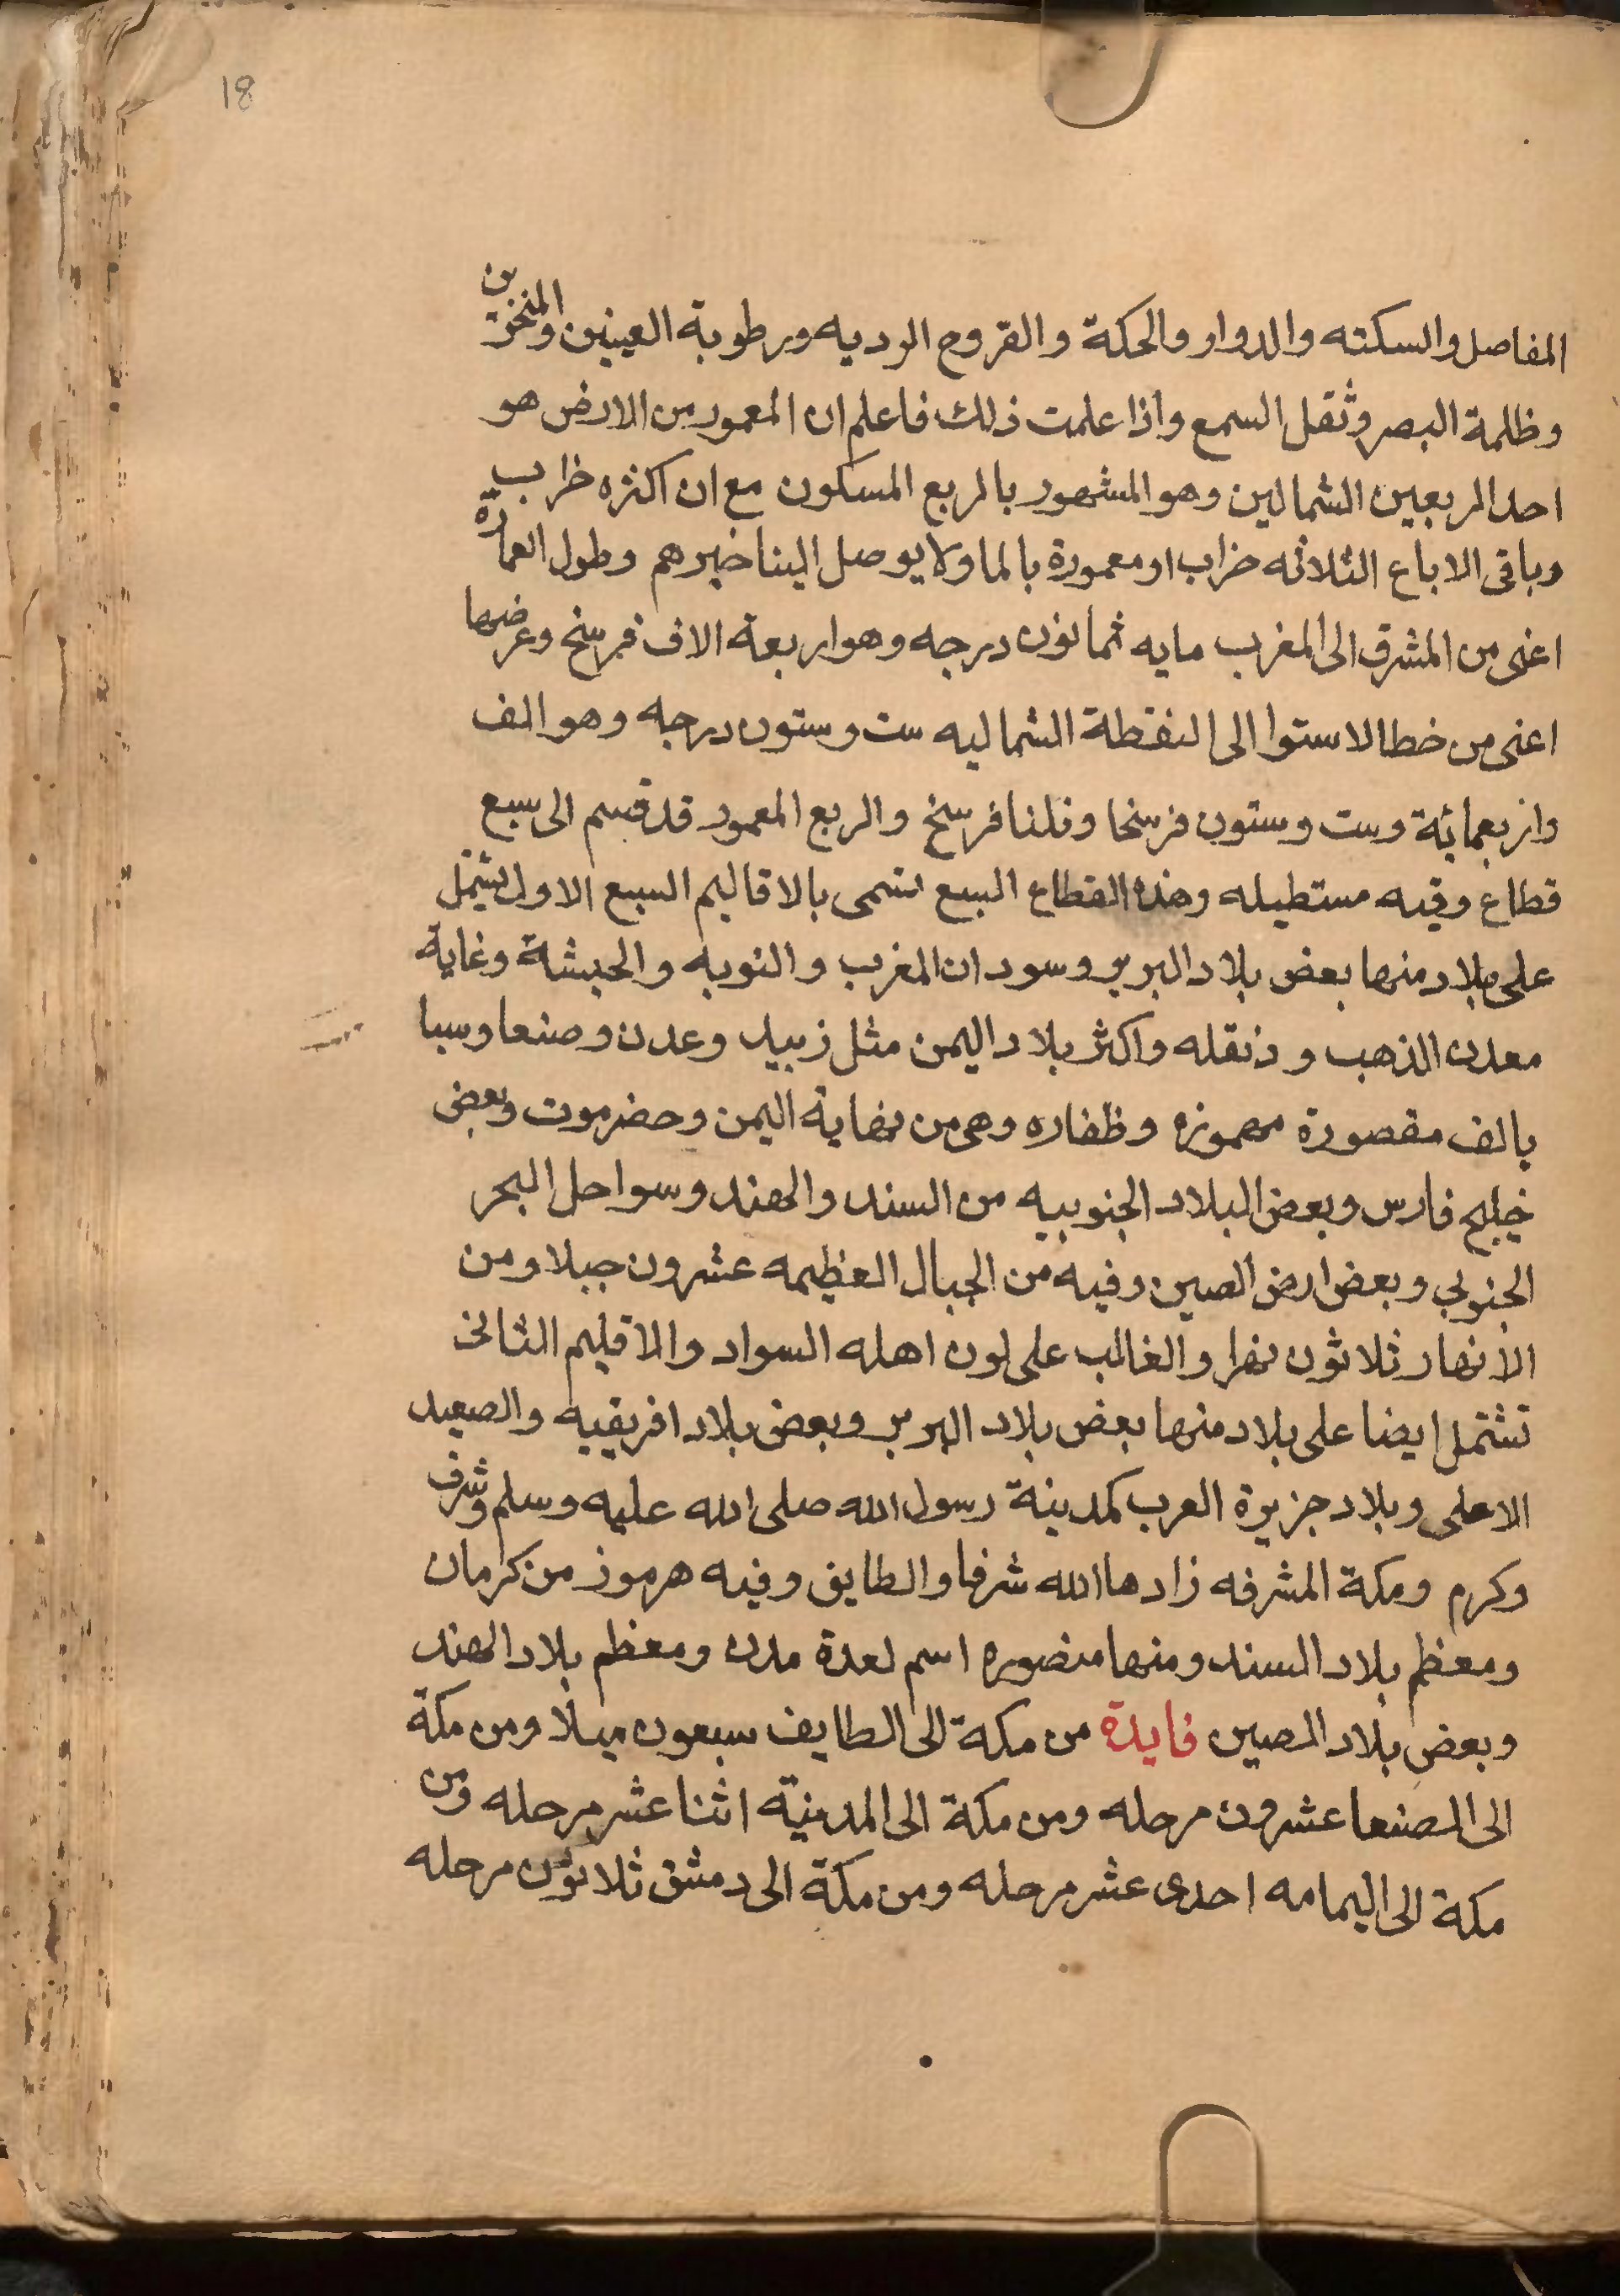 18
المفاصل والسكته والدوار والحكة والقروح الرديه ورطوبة العينين والمنخرين
وظلمة البصر وثقل السمع واذا علمت ذلك فاعلم ان المعمور من الارض هو
احد الربعين الشمالين وهو المشهور بالربع المسكون مع ان اكثره خراب
وباقى الاباع الثلاثه خراب او معمورة بالما ولا يوصل الينا خبرهم وطول العمارة
اعنى من المشرق الى المغرب مايه ثمانون درجه وهو اربعة الاف فرسخ وعرضها
اعنى من خط الاستوا الى النقطة الشماليه ست وستون درجه وهو الف
واربعمائة وست وستون فرسخا وثلثا فرسخ والربع المعمور قد قسم الى سبع
قطاع وقيه مستطيله وهذه القطاع السبع تسمى بالاقاليم السبع الاول يشتمل
على بلاد منها بعض بلاد البربر وسودان المغرب والنوبه والحبشة وغاية
معدن الذهب ودنقله واكثر بلاد اليمن مثل زبيد وعدن وصنعا وسبا
بالف مقصورة مهموزه وظفاره وهى من نهاية اليمن وحضرموت وبعض
خيلج فارس وبعض البلاد الجنوبيه من السند والهند وسواحل البحر
الجنوبي وبعض ارض الصين وفيه من الجبال العظيمه عشرون جبلا ومن
الانهار ثلاثون نهرا والغالب على لون اهله السواد والاقليم الثانى
تشتمل ايضا على بلاد منها بعض بلاد البربر وبعض بلاد افريقيه والصعيد
الاعلى وبلاد جزيرة العرب كمدينة رسول الله صلى الله عليه وسلم وشرف
وكرم ومكة المشرفه زادها الله شرفا والطايق وفيه هرموز من كرمان
ومعظم بلاد السند ومنها منصوره اسم لعدة مدن ومعظم بلاد الهند
وبعض بلاد الصين فايدة من مكة الى الطايف سبعون ميلا ومن مكة
الى الصنعا عشرون مرحله ومن مكة الى المدينة اثنا عشر مرحله ومن
مكة الى اليمامه احدى عشر مرحله ومن مكة الى دمشق ثلاثون مرحله